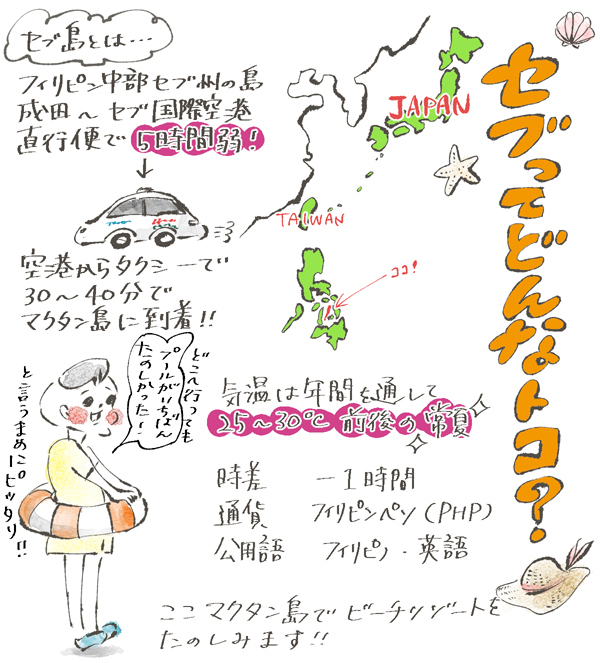 セブってどんなトコ?
セブ島とは…
フィリピン中部セブ州の島
成田〜セブ国際空港
直行便で5時間弱!
空港からタクシーで
30〜40分で
マクタン島に到着!!
JAPAN
TAIWAN
ココ!
気温は年間を通して
25〜30℃前後の常夏
時差 −1時間
通貨 フィリピンペソ(PHP)
公用語 フィリピノ・英語
どこ行っても
プールがいちばん
たのしかった!
と言うまめこ。
ピッタリ!!
ここマクタン島でビーチリゾートを
たのしみます!!